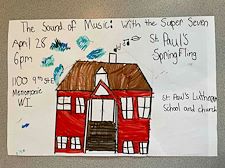 The Sound of Music: With the Super Seven
April 28
6pm
St. Paul's
Springfling
1100 9th St E
Menomonie
WI
St. Paul's Lutheran
School and church